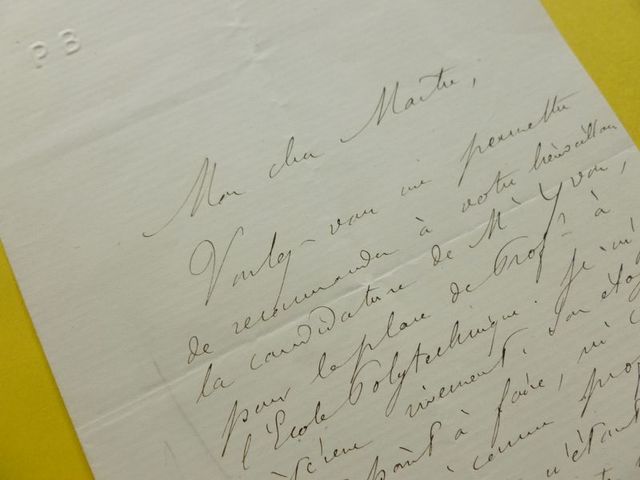 PB
Mon cher Maître,
Voulez-vous me permettre
de recommander à votre bienveillan
la candidature de Mr Yvon,
pour la place de Profr à
l'École Polytechnique. Je m'
vivement, son élo
point à faire, ni
comme prof
n'étant